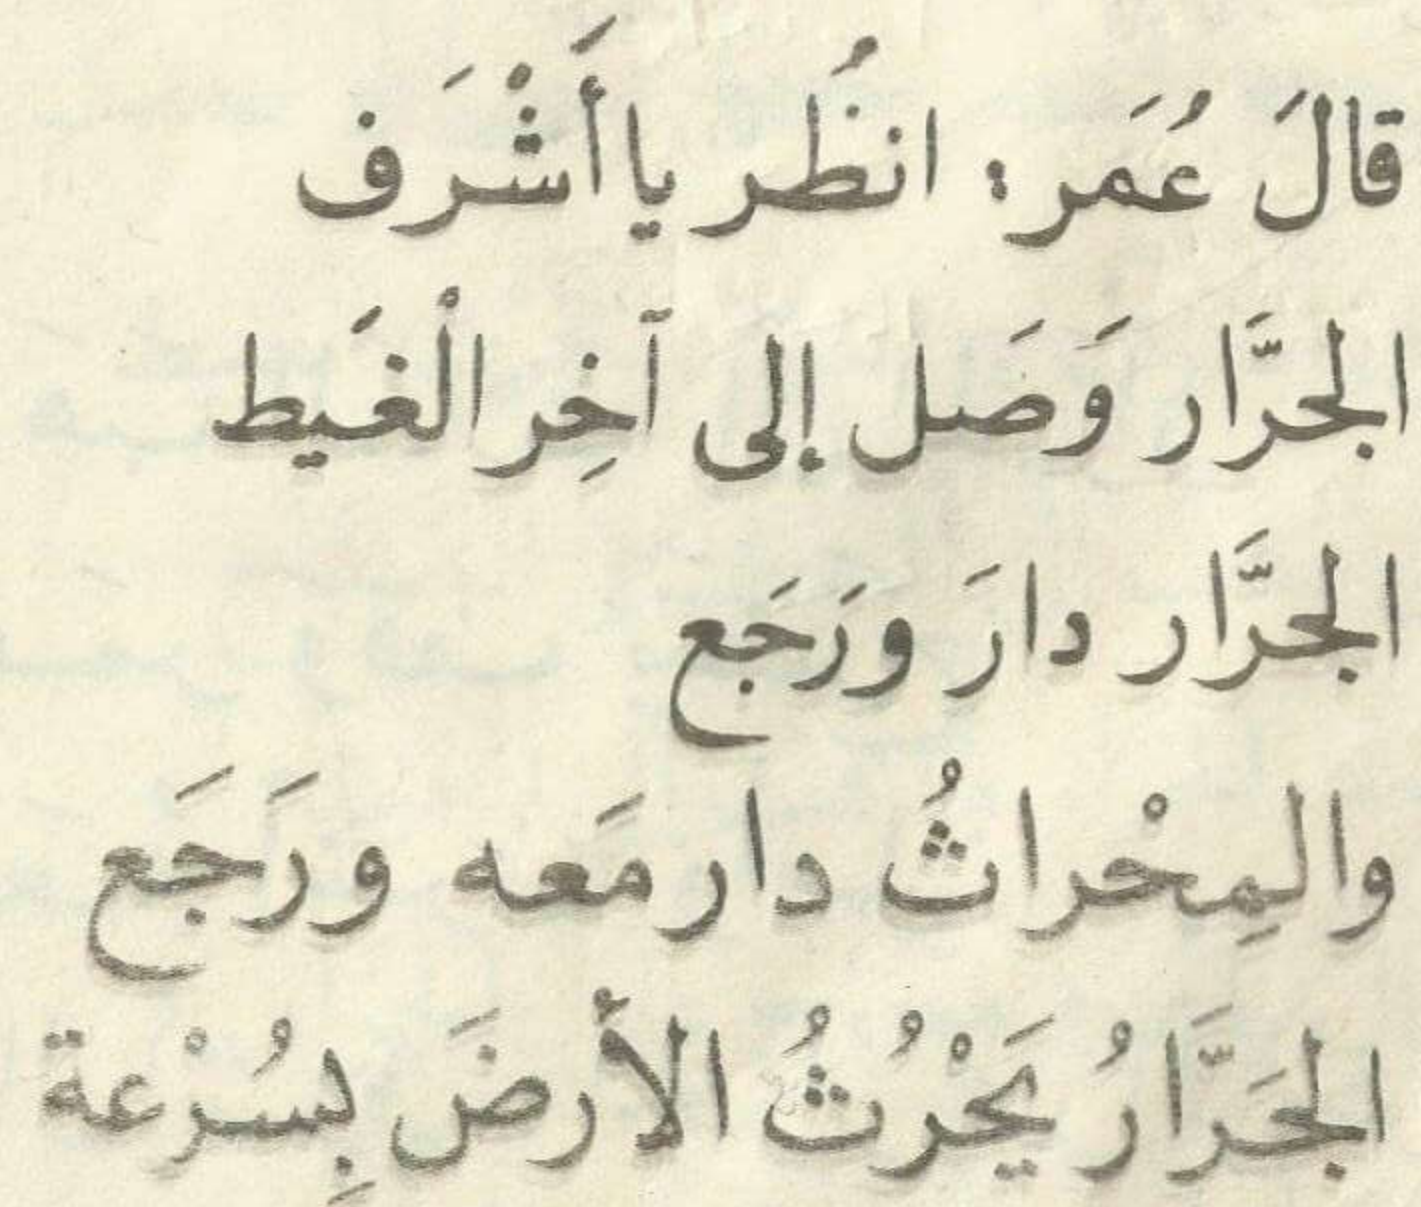 قالَ عُمَر: انظُر يا أَشْرَف
الجرَّار وَصَل إلى آخِر الْغَيط
الجرَّار دارَ ورَجَع
والمِحْراثُ دار مَعه ورَجَع
الجَرَّارُ يَحْرُثُ الأَرضَ بِسُرْعة